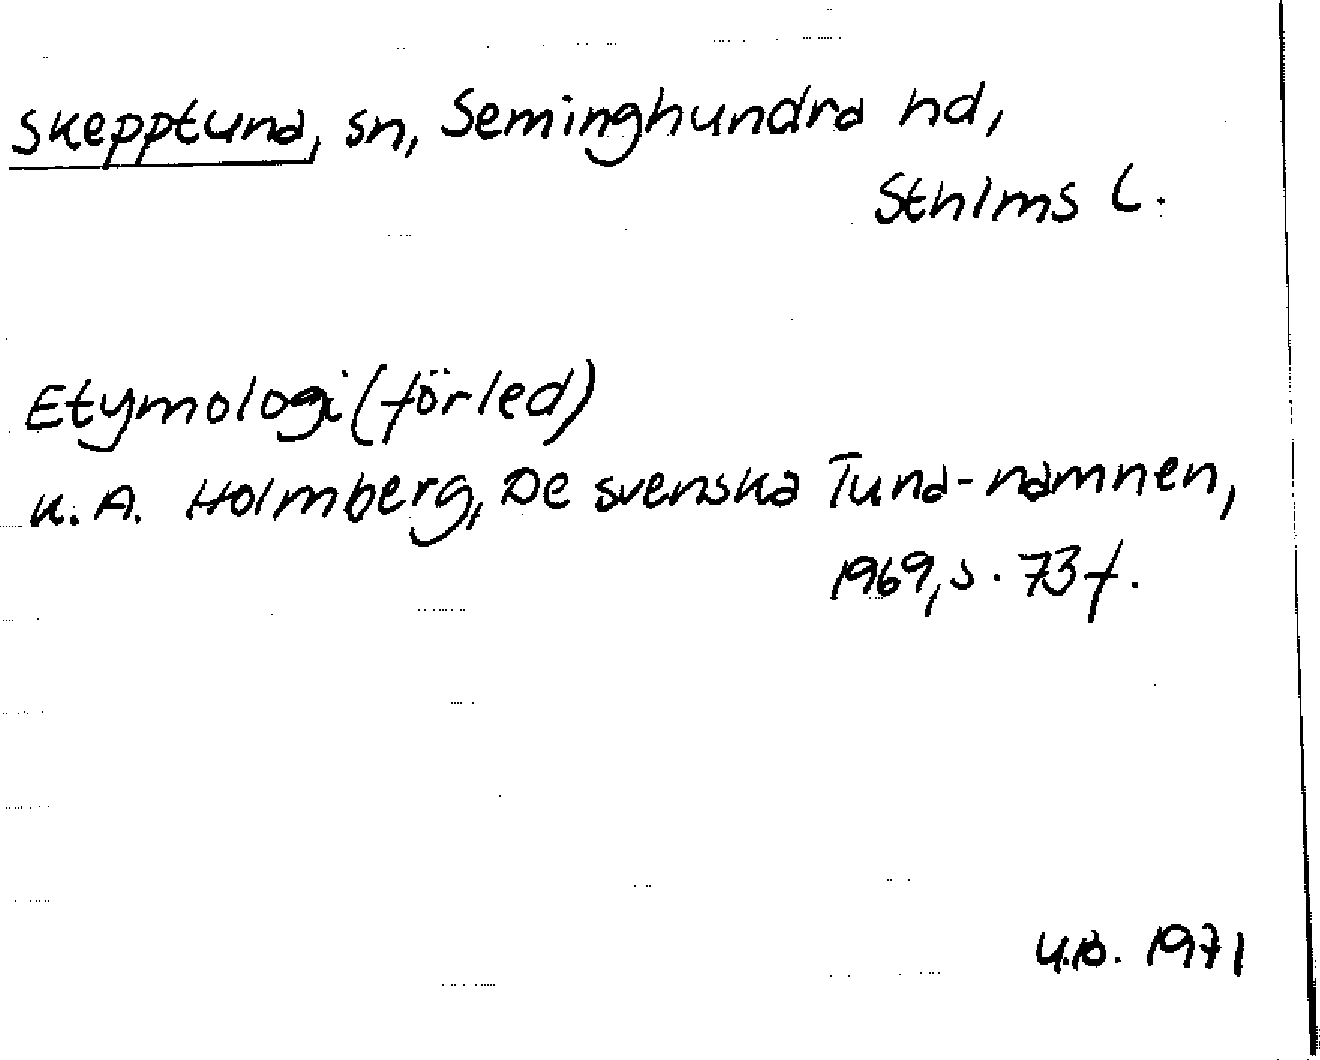 Skepptuna, sn, Seminghundra hd,
Sthlms l.
Etymologi (förled)
K.A. Holmberg, De svenska Tuna-namnen,
1969, s. 73 f.
U.B. 1971